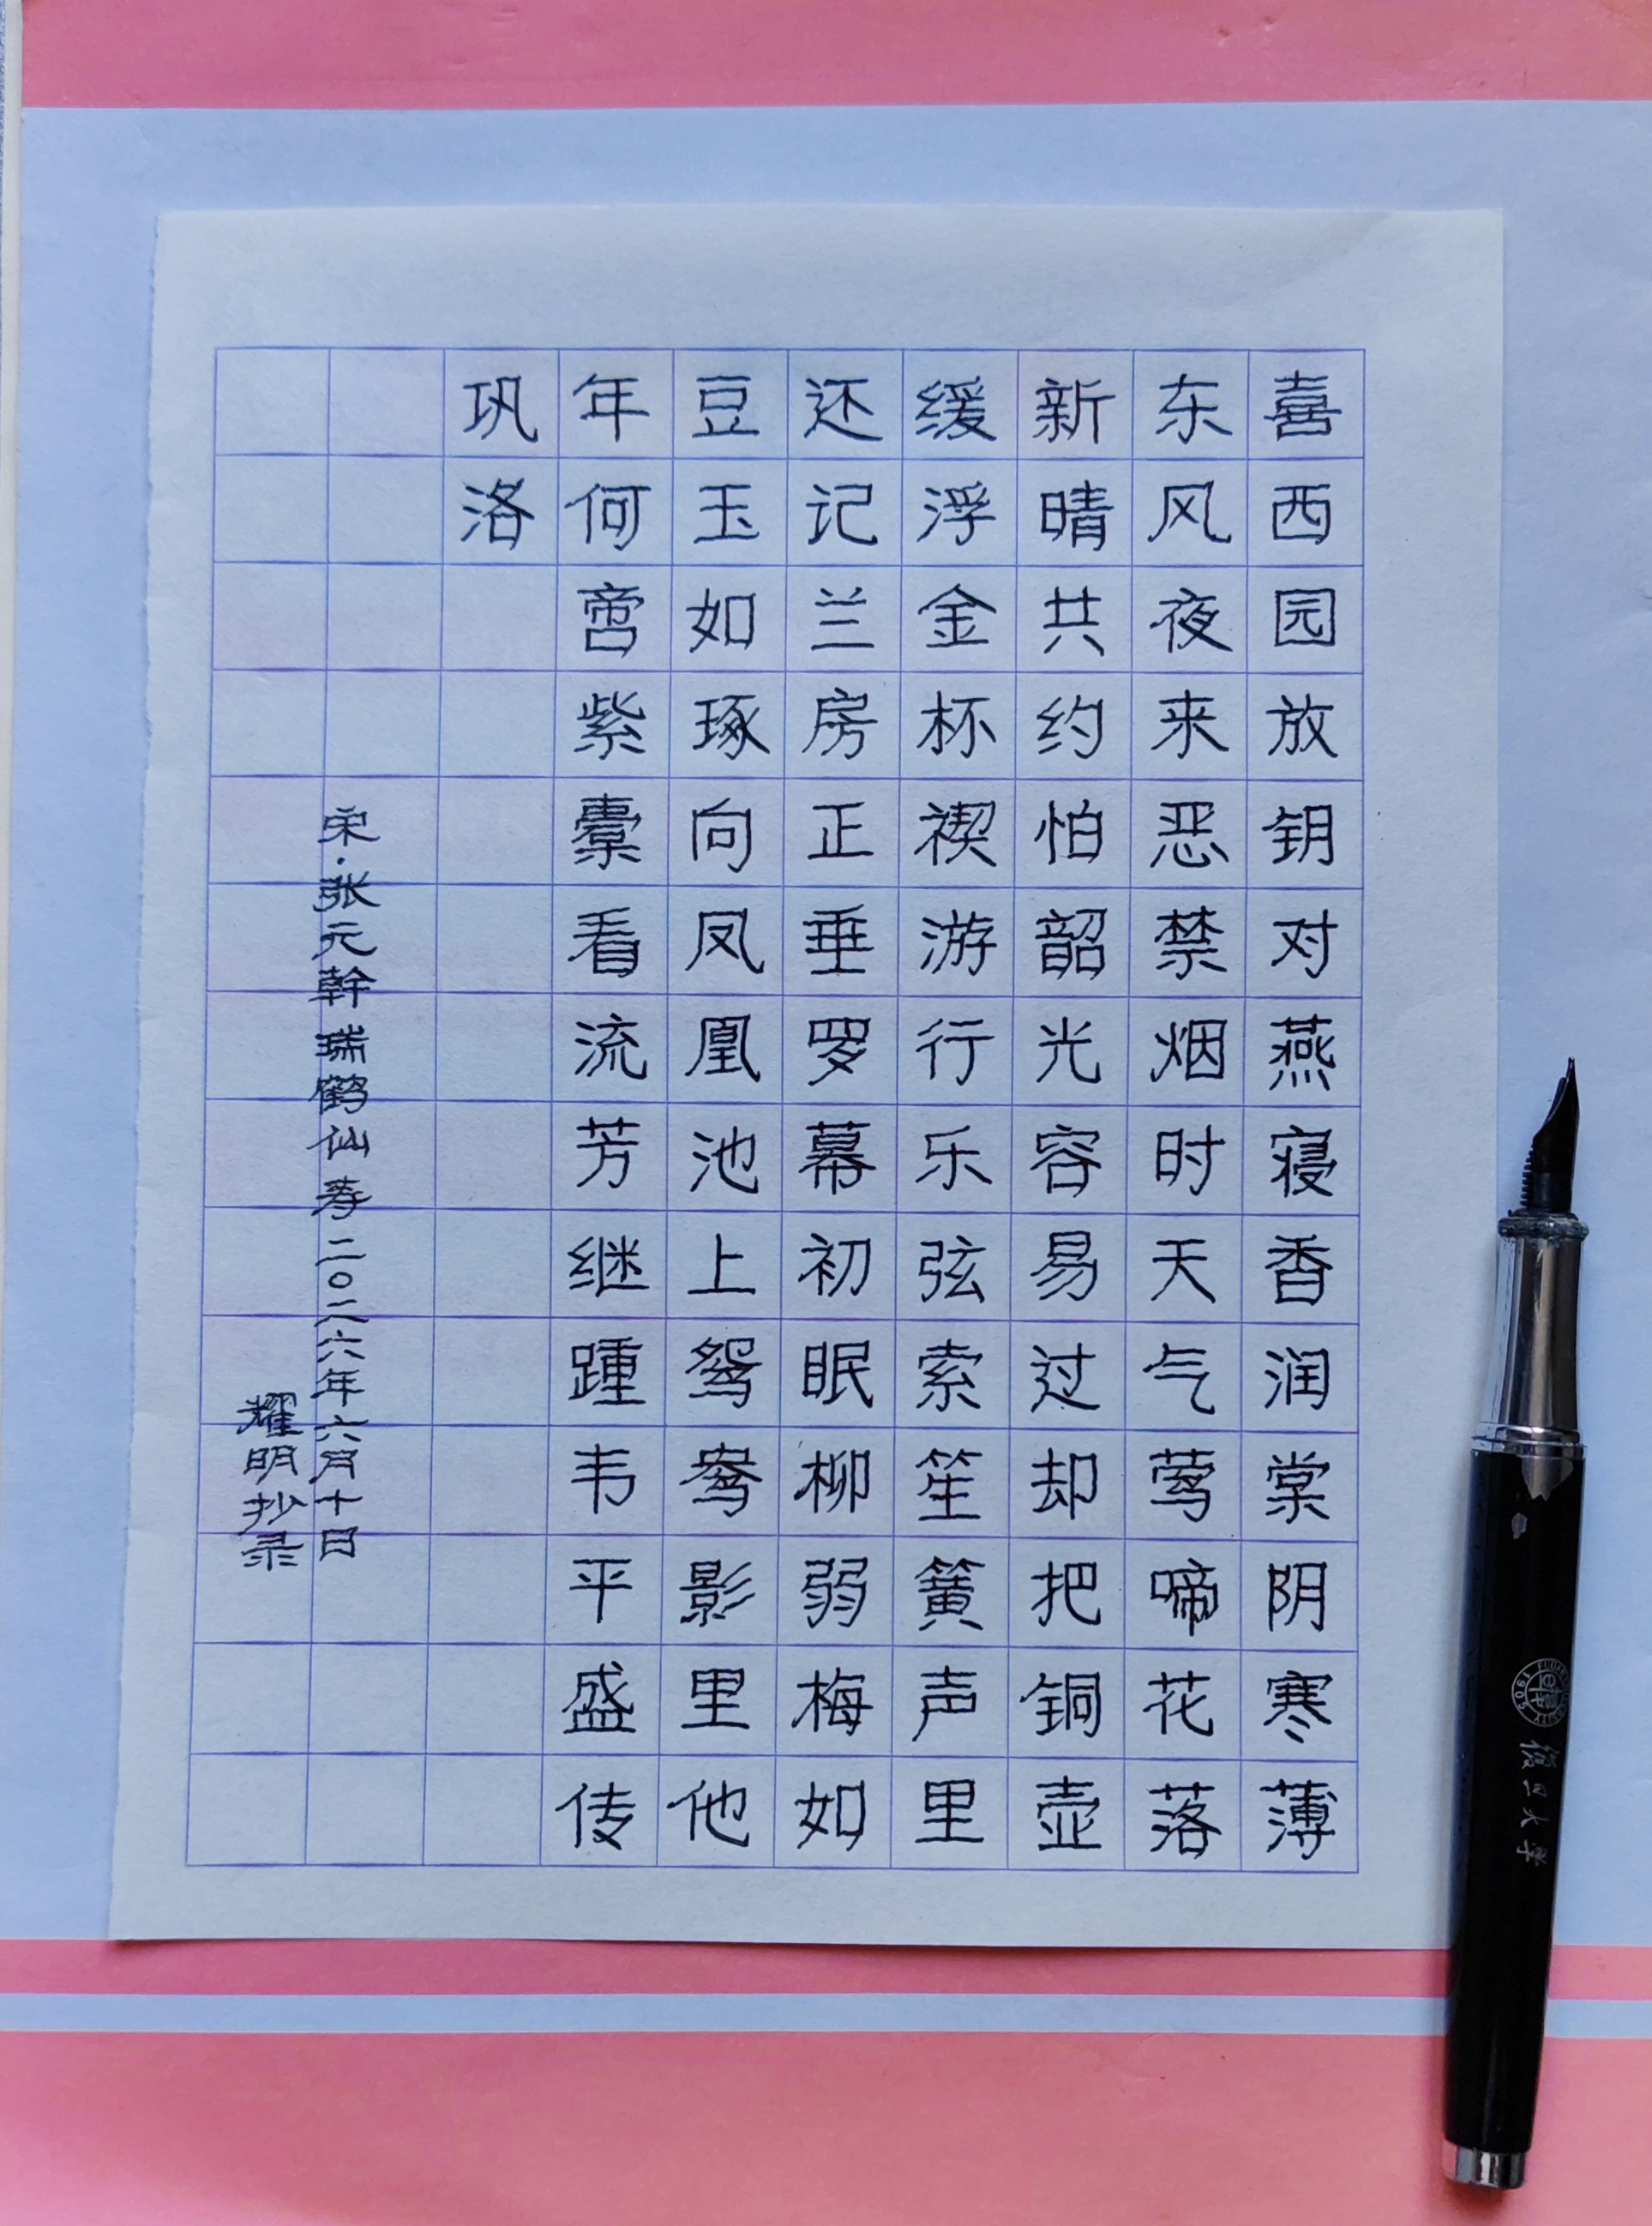 喜西园放钥对燕寝香润棠阴寒薄
东风夜来恶禁烟时天气莺啼花落
新晴共约怕韶光容易过却把铜壶
缓浮金杯禊游行乐弦索笙簧声里
还记兰房正垂罗幕初眠柳弱梅如
豆玉如琢向凤凰池上鸳鸯影里他
年何啻紫橐看流芳继踵韦平盛传
巩洛
宋·张元幹瑞鹤仙寿二〇二六年六月十日
耀明抄录
复旦大学
1905